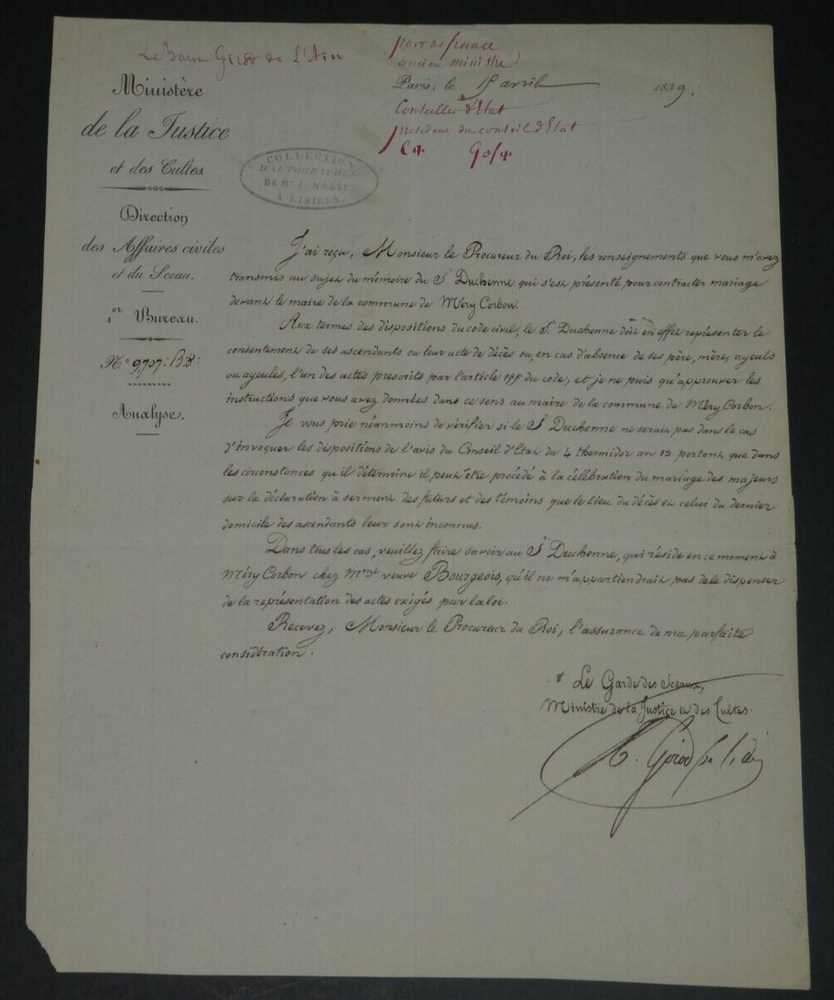 Le Baron Girod de L'Ain
pair de france
ancien ministre
Paris, le avril 1839.
Conseiller d'Etat
president du conseil d'Etat
Ministère
de la Justice
et des Cultes
COLLECTION
D'AUTOGRAPHES
DE Mr J.
A LISIEUX
Direction
des Affaires civiles
et du Sceau.
1er Bureau.
No 9707: B8:
Analyse.
J'ai reçu, Monsieur le Procureur du Roi, les renseignements que vous m'avez
transmis au sujet du mémoire du Sr Duchenne qui s'est présenté pour contracter mariage
devant le maire de la commune de Méry Corbon.
Aux termes des dispositions du code civil, le Sr Duchenne doit en effet représenter le
consentement de ses ascendants ou leur acte de décès ou, en cas d'absence de ses père, mère, ayeuls
ou ayeules, l'un des actes prescrits par l'article du code, et je ne puis qu'approuver les
instructions que vous avez données dans ce sens au maire de la commune de Méry Corbon.
Je vous prie néanmoins de vérifier si le Sr Duchenne ne serait pas dans le cas
d'invoquer les dispositions de l'avis du Conseil d'Etat du 4 thermidor an 13 portant que dans
les circonstances qu'il détermine il peut être procédé à la célébration du mariage des majeurs
sur la déclaration à serment des futurs et des témoins que le lieu du décès et celui du dernier
domicile des ascendants leur sont inconnus.
Dans tous les cas, veuillez faire savoir au Sr Duchenne, qui réside en ce moment à
Méry Corbon chez Mme veuve Bourgeois, qu'il ne m'appartiendrait pas de le dispenser
de la représentation des actes exigés par la loi.
Recevez, Monsieur le Procureur du Roi, l'assurance de ma parfaite
considération.
Le Garde des Sceaux,
Ministre de la Justice et des Cultes.
Girod de l'ain